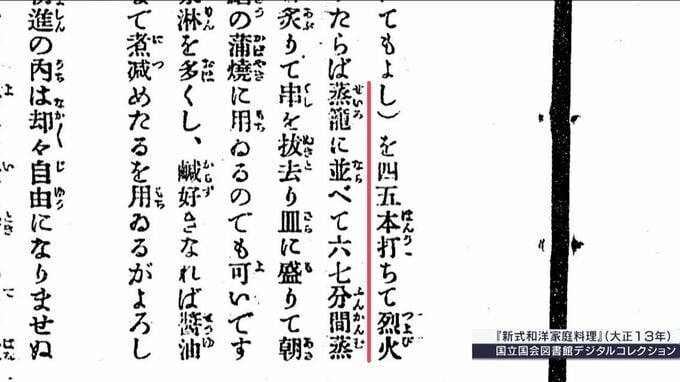 てもよし）を四五本打ちて烈火
たらば蒸籠に並べて六七分間蒸
炙りて串を抜去り皿に盛りて朝
の蒲燒に用ゐるのでも可いです
淋を多くし、鹹好きなれば醬油
て煮減めたるを用ゐるがよろし
進の内は却々自由になりませぬ
『新式和洋家庭料理』（大正13年）
国立国会図書館デジタルコレクション